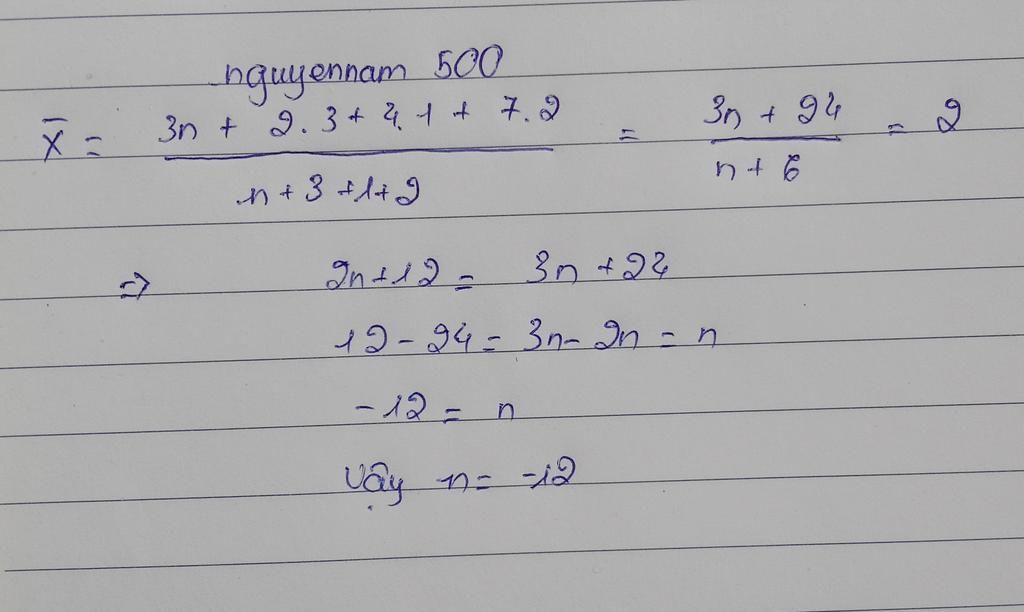 nguyennam 500
X̄ = (3n + 2.3 + 4.1 + 7.2)/(n + 3 + 1 + 2) = (3n + 24)/(n + 6) = 2
=> 2n + 12 = 3n + 24
12 - 24 = 3n - 2n = n
-12 = n
Vậy n = -12